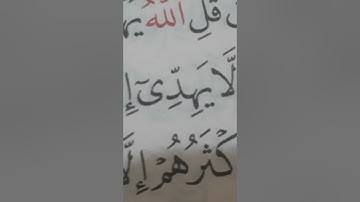 قُلِ اللَّهُ
لَّا يَهِدِّىٓ
كْثَرُهُمْ إِلَّا